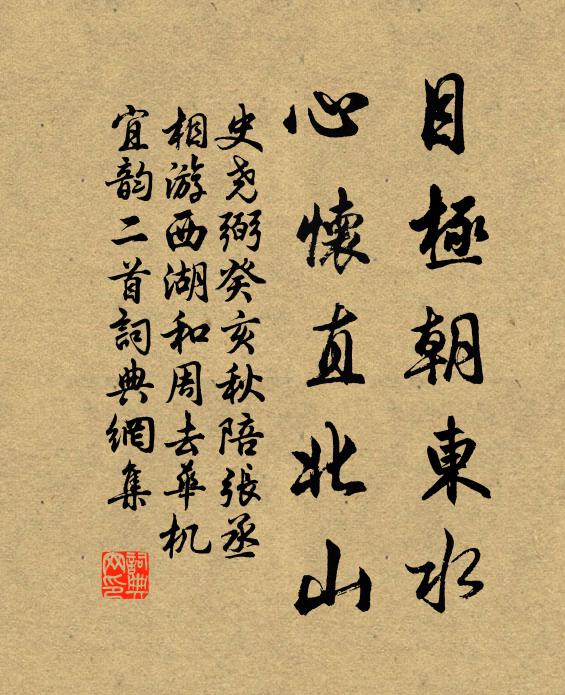 目極朝東水
心懷直北山
史尧弼癸亥秋陪張丞
相游西湖和周去華机
宜韵二首詞典網集
詞典
网印